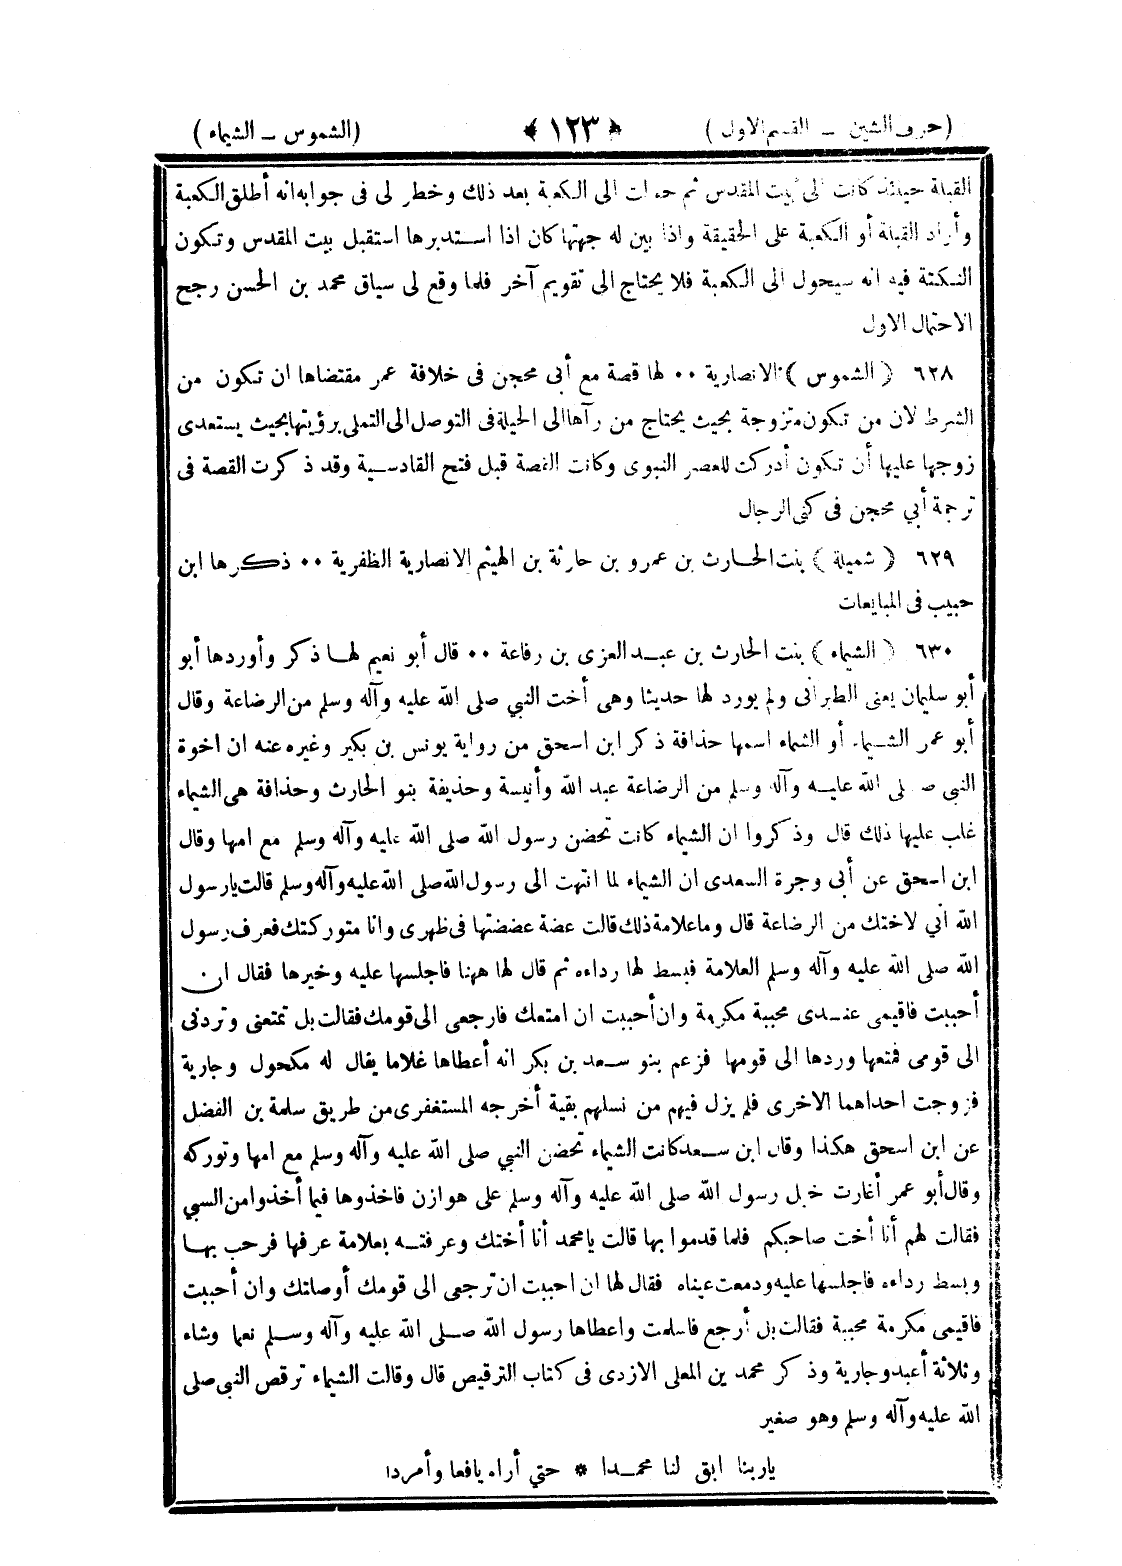 (حرف الشين – القسم الاول) ﴿ ١٢٣ ﴾ (الشموس – الشيماء)
القبلة حينئذ كانت الى بيت المقدس ثم حولت الى الكعبة بعد ذلك وخطر لى فى جوابه انه أطلق الكعبة
وأراد القبلة أو الكعبة على الحقيقة واذا بين له جهتها كان اذا استدبرها استقبل بيت المقدس وتكون
النكتة فيه انه سيحول الى الكعبة فلا يحتاج الى تقويم آخر فلما وقع لى سياق محمد بن الحسن رجح
الاحتمال الاول
٦٢٨ (الشموس) الانصارية ٠٠ لها قصة مع أبى محجن فى خلافة عمر مقتضاها ان تكون من
الشرط لان من تكون متزوجة بحيث يحتاج من رآها الى الحيلة فى التوصل الى التملى برؤيتها بحيث يستعدى
زوجها عليها أن تكون أدركت للعصر النبوى وكانت القصة قبل فتح القادسية وقد ذكرت القصة فى
ترجمة أبي محجن فى كنى الرجال
٦٢٩ (شميلة) بنت الحارث بن عمرو بن حارثة بن الهيثم الانصارية الظفرية ٠٠ ذكرها ابن
حبيب فى المبايعات
٦٣٠ (الشيماء) بنت الحارث بن عبد العزى بن رفاعة ٠٠ قال أبو نعيم لها ذكر وأوردها أبو
أبو سليمان يعنى الطبرانى ولم يورد لها حديثا وهى أخت النبي صلى الله عليه وآله وسلم من الرضاعة وقال
أبو عمر الشيماء أو الشماء اسمها حذافة ذكر ابن اسحق من رواية يونس بن بكير وغيره عنه ان اخوة
النبى صلى الله عليه وآله وسلم من الرضاعة عبد الله وأنيسة وحذيفة بنو الحارث وحذافة هى الشيماء
غلب عليها ذلك قال وذكروا ان الشيماء كانت تحضن رسول الله صلى الله عليه وآله وسلم مع امها وقال
ابن اسحق عن أبى وجرة السعدى ان الشيماء لما انتهت الى رسول الله صلى الله عليه وآله وسلم قالت يارسول
الله أنى لاختك من الرضاعة قال وما علامة ذلك قالت عضة عضضتها فى ظهرى وانا متوركتك فعرف رسول
الله صلى الله عليه وآله وسلم العلامة فبسط لها رداءه ثم قال لها ههنا فاجلسها عليه وخيرها فقال ان
أحببت فاقيمى عندى محببة مكرمة وان أحببت ان امتعك فارجعى الى قومك فقالت بل تمتعنى وتردنى
الى قومى فمتعها وردها الى قومها فزعم بنو سعد بن بكر انه أعطاها غلاما يقال له مكحول وجارية
فزوجت احداهما الاخرى فلم يزل فيهم من نسلهم بقية أخرجه المستغفرى من طريق سلمة بن الفضل
عن ابن اسحق هكذا وقال ابن سعد كانت الشيماء تحضن النبي صلى الله عليه وآله وسلم مع امها وتوركه
وقال أبو عمر أغارت خيل رسول الله صلى الله عليه وآله وسلم على هوازن فاخذوها فيما أخذوا من السبي
فقالت لهم أنا أخت صاحبكم فلما قدموا بها قالت يامحمد أنا أختك وعرفته بعلامة عرفها فرحب بها
وبسط رداءه فاجلسها عليه ودمعت عيناه فقال لها ان احببت ان ترجعى الى قومك أوصلتك وان أحببت
فاقيمى مكرمة محببة فقالت بل أرجع فاسلمت واعطاها رسول الله صلى الله عليه وآله وسلم نعما وشاء
وثلاثة أعبد وجارية وذكر محمد بن المعلى الازدى فى كتاب الترقيص قال وقالت الشيماء ترقص النبى صلى
الله عليه وآله وسلم وهو صغير
ياربنا ابق لنا محمدا * حتي أراه يافعا وأمردا